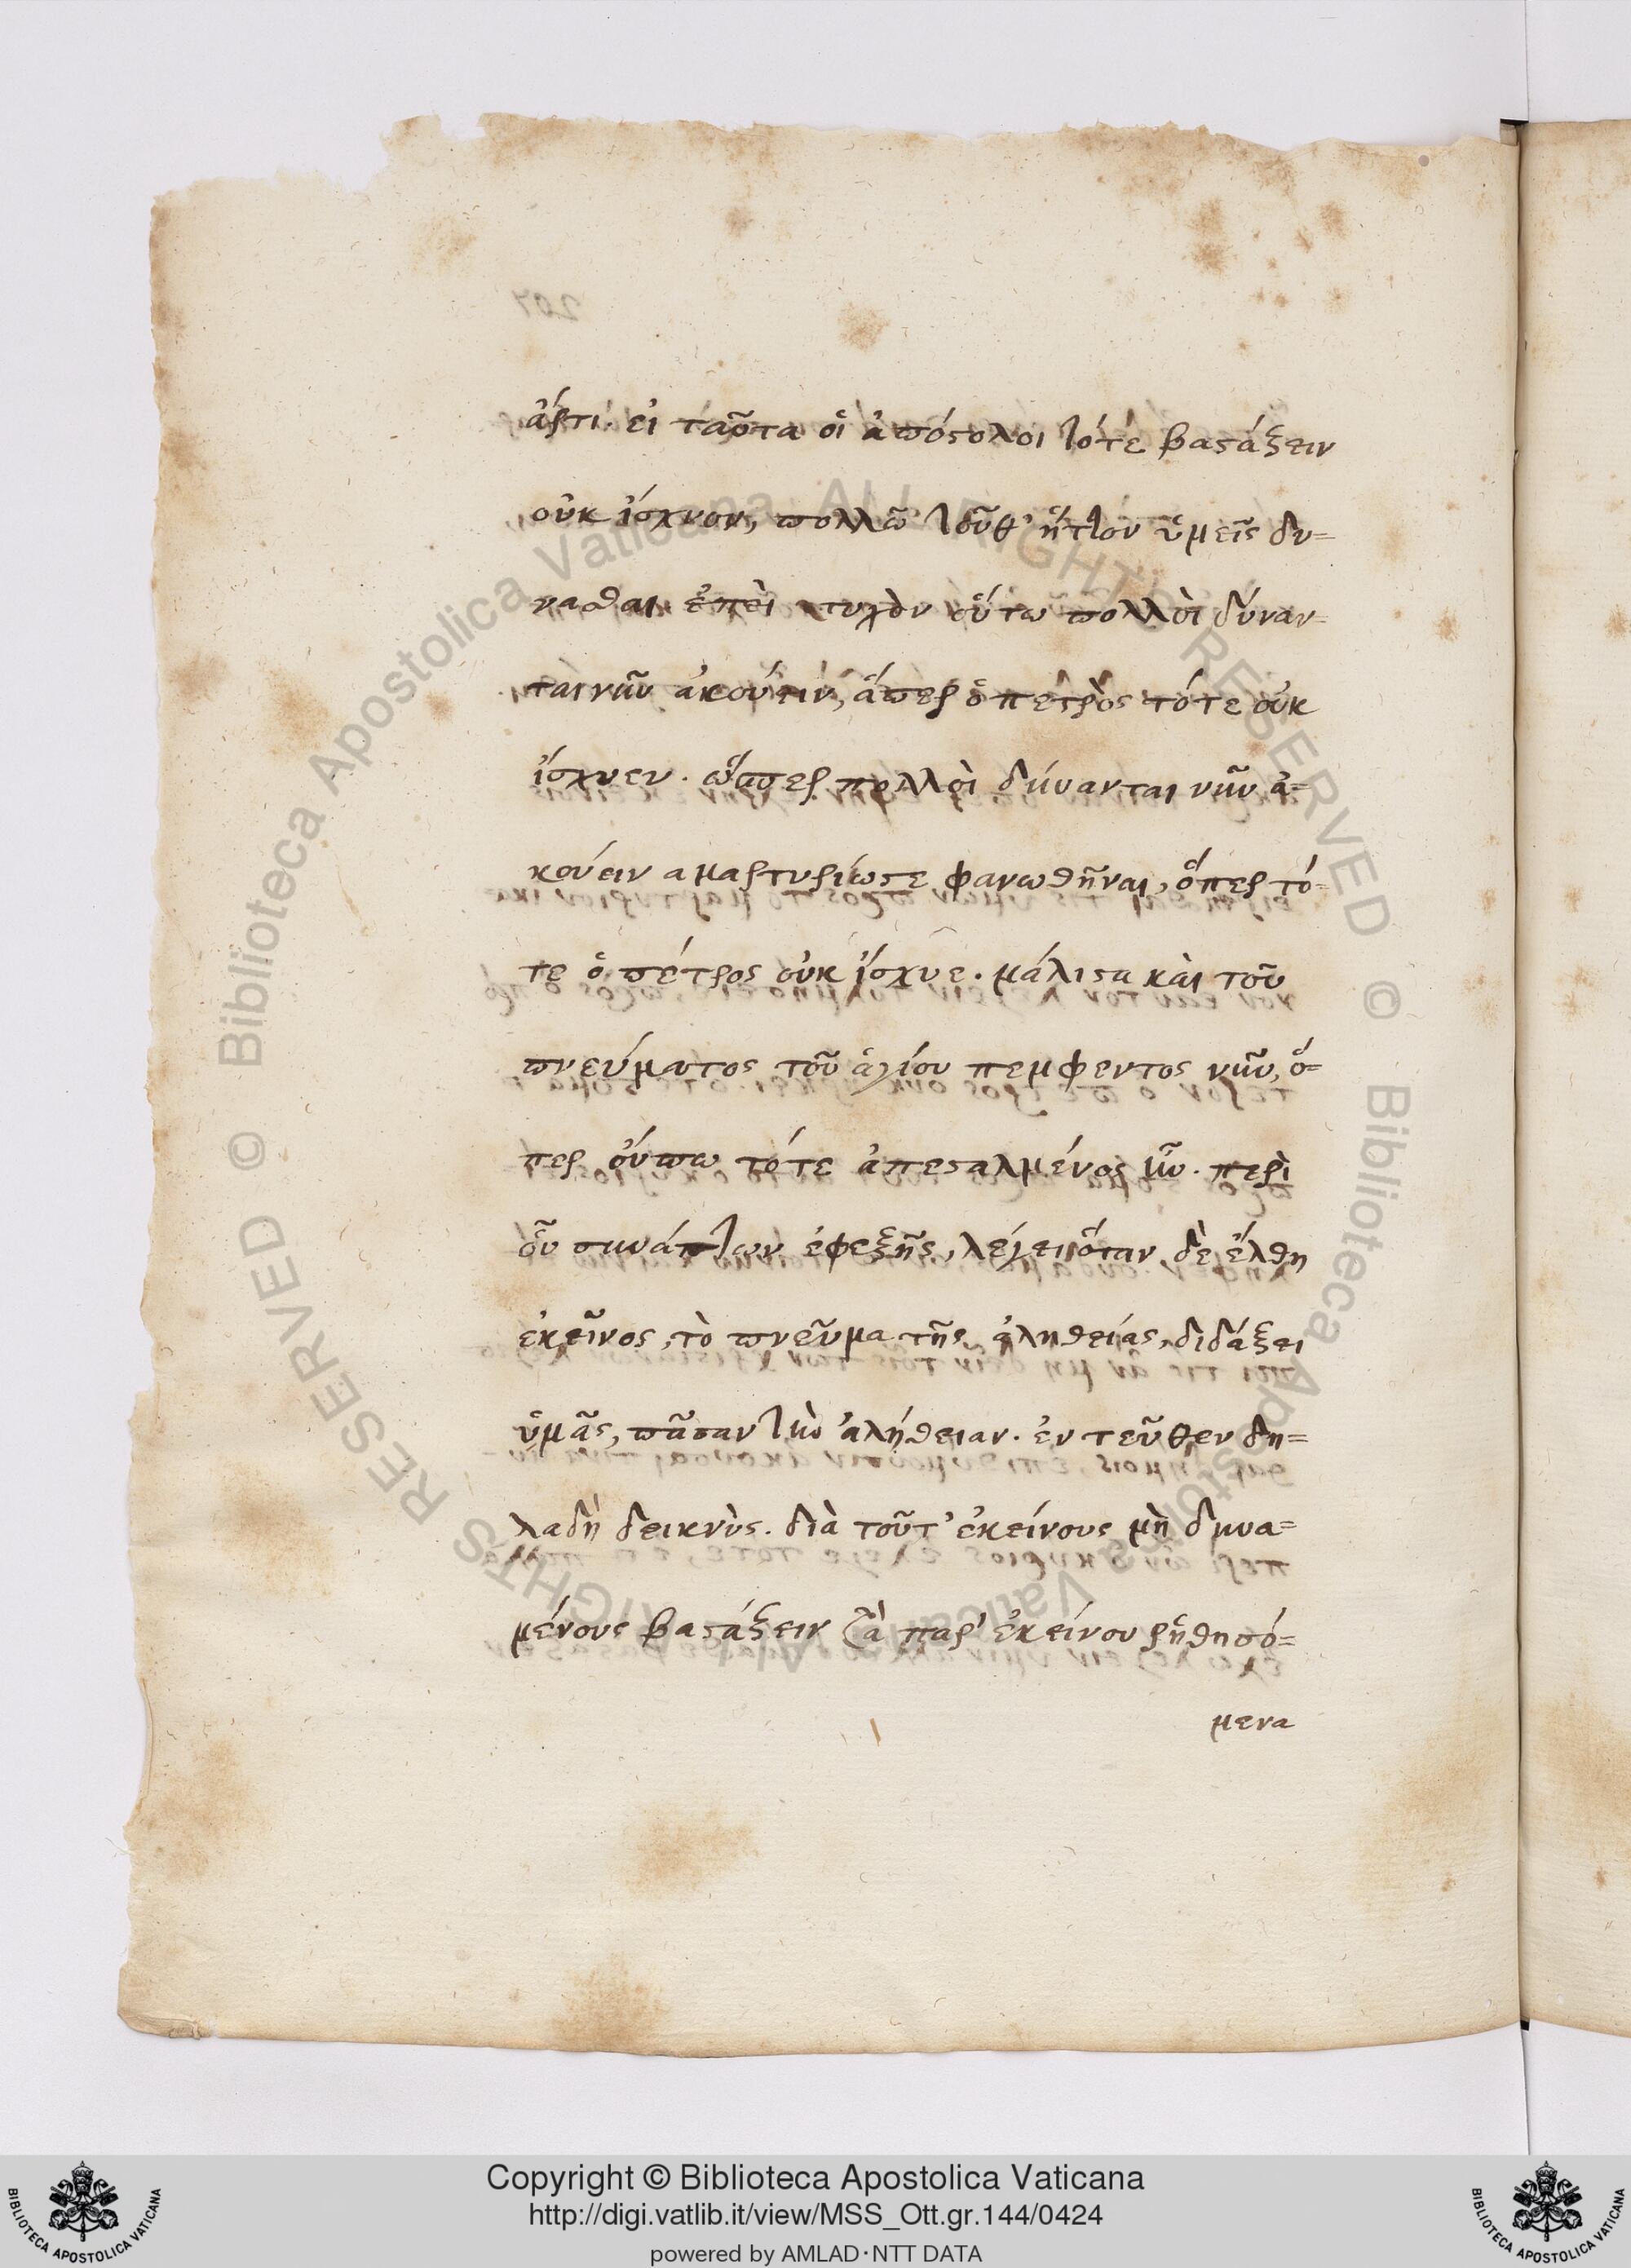 ἄρτι. εἰ ταῦτα οἱ ἀπόστολοι τότε βαστάξειν
οὐκ ἴσχυον, πολλῶ τοῦθ' ἧττον ὑμεῖς δύ-
νασθαι ἐπεὶ τυχὸν οὕτω πολλοὶ δύναν-
ται νῦν ἀκούειν, ἅπερ ὁ πετρὸς τότε οὐκ
ἴσχυεν. ὥσπερ πολλοὶ δύνανται νῦν ἀ-
κούειν α μαρτυρίω στεφανωθῆναι, ὅπερ τό-
τε ὁ πέτρος οὐκ ἴσχυε. μάλιστα καὶ τοῦ
πνεύματος τοῦ ἁγίου πεμφεντος νῦν, ὅ-
περ οὔπω τότε ἀπεσταλμένος ἦν. περὶ
οὗ συνάπτων ἐφεξῆς, λέγει ὅταν δὲ ἔλθη
ἐκεῖνος, τὸ πνεῦμα τῆς ἀληθείας, διδάξει
ὑμᾶς, πᾶσαν τὴν ἀλήθειαν. ἐν τεῦθεν δη-
λαδὴ δεικνὺς. διὰ τοῦτ' ἐκείνους μὴ δυνα-
μένους βαστάξειν τὰ παρ' ἐκείνου ῥηθησό-
μενα
Copyright © Biblioteca Apostolica Vaticana
http://digi.vatlib.it/view/MSS_Ott.gr.144/0424
powered by AMLAD·NTT DATA